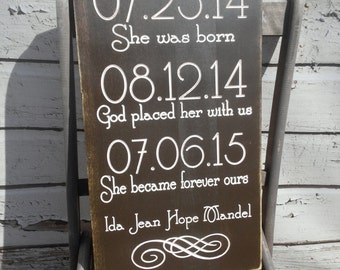 07.23.14
She was born
08.12.14
God placed her with us
07.06.15
She became forever ours
Ida Jean Hope Mandel